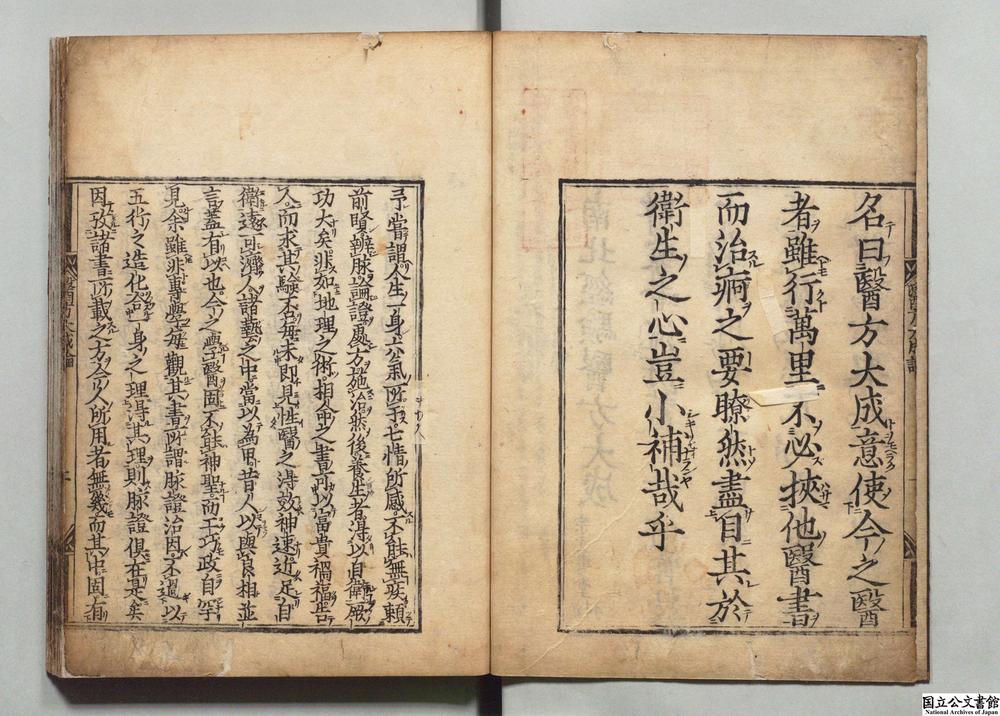 名曰醫方大成意使今之醫
者雖行萬里不必挾他醫書
而治病之要瞭然盡目其於
衛生之心豈小補哉乎
予嘗謂人生一身六氣所干七情所感不能無疾賴
前賢辨脉論證處方施治然後養生者得以自衛厥
功大矣非如地理之術相命之書可以富貴禍福告
人而求其驗否每未即見惟醫之得效神速近足自
衛遠可濟人諸藝之中當以為甲昔人以與良相並
言蓋有以也今之學醫固不能神聖而工巧政自罕
見余雖非專學每觀其書所謂脉證治因不過以
五行之造化合一身之理得其理則脉證俱在是矣
因攷諸書所載之方今人所用者無幾而其中固有
醫方大成論
国立公文書館
National Archives of Japan